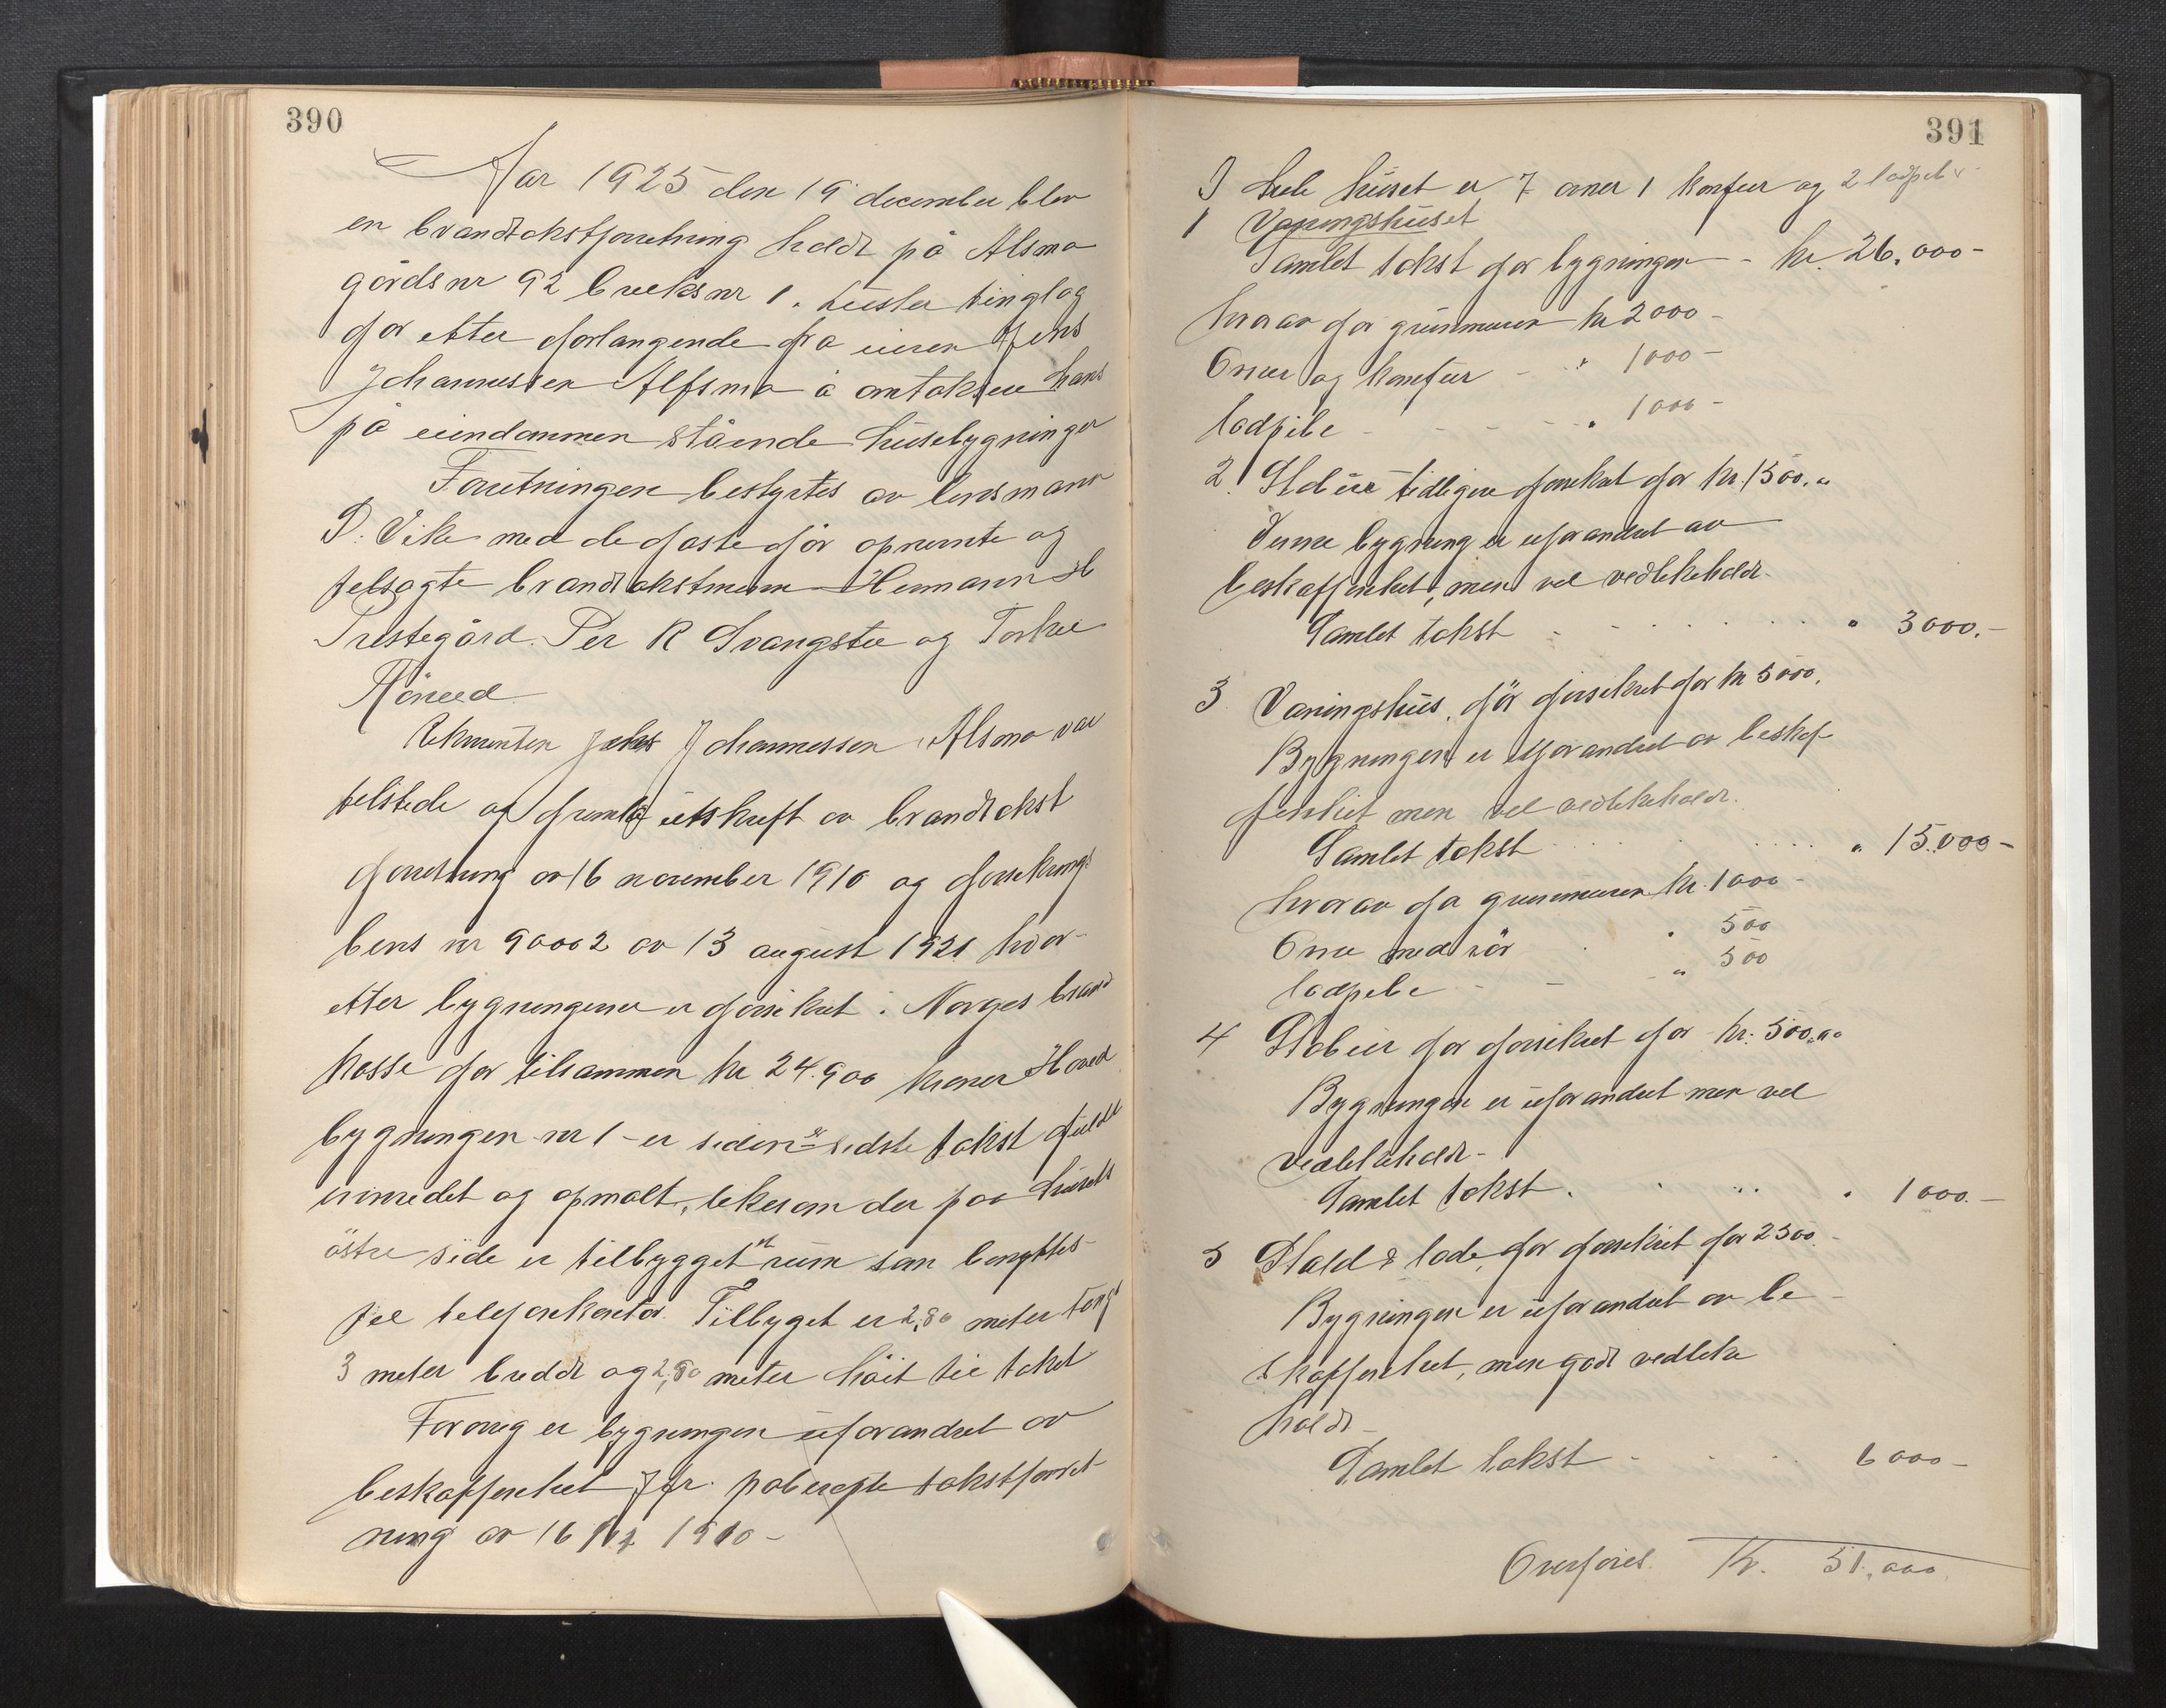 390
Aar 1925 den 19 december blev
en brandtakstforretning holdt på Alsmo
gårdsnr 92 bruksnr 1. Luster tinglag
for etter forlangende fra eieren Jens
Johannessen Alfsmo å omtaksere hans
på eiendommen stående husebygninger
Forretningen bestyrtes av lensmann
D. Vike med de faste för opnevnte og
Prestegård. Per R Svangstu og
Rekvirenten Johannessen Alsmo var
tilstede og fremla utskrift av brandtakst
forretning av 16 november 1910 og forsikrings
bevis nr 90002 av 13 august 1921 hvor-
etter bygningerne er forsikret i Norges brand
kasse for tilsammen kr 24.900 kroner Hoved
bygningen nr 1 er siden sidste takst fuldt
innredet og opmalt, likesom der paa husets
östre side er tilbygget et rum som benyttes
til telefonkontor. Tilbyget er 2,80 meter langt
3 meter bredt og 2,80 meter höit til taket
Forövrig er bygningen uforandret av
beskaffenhet Jfr. paberopte takstforret
ning av 16 1910 -
391
I hele huset er 7 ovner 1 komfur og 2 ladpiber
1 Vaningshuset
Samlet takst for bygningen - kr. 26,000-
hvorav for grunmuren kr 2000-
Ovner og komfur - " 1000-
ladpibe - - - - " 1000-
2 Stabur tidligere forsikret for kr. 1500.
Denne bygning er uforandret av
beskaffenhet, men vel vedlikeholdt.
Samlet takst " 3000.-
3 Vaningshus, för forsikret for kr 5000.
Bygningen er uforandret av beskaf
fenhet men vel vedlikeholdt.
Samlet takst " 15.000-
hvorav for grunmuren kr. 1000-
Ovne med rör " 500
ladpibe - - " 500
4 Stabur för forsikret for kr. 500.
Bygningen er uforandret men vel
vedlikeholdt-
Samlet takst. " 1000.-
5 Stald & lade, för forsikret for 2500.-
Bygningen er uforandret av be-
skaffenhet, men godt vedlike
holdt-
Samlet takst - 6000-
Overföres. Kr. 51,000